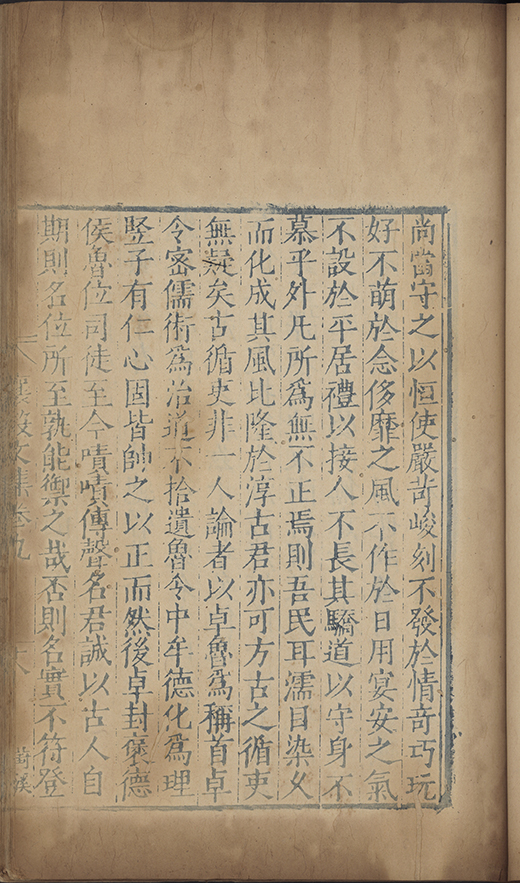 尚當守之以恒使嚴苛峻刻不發於情奇巧玩
好不萌於念侈靡之風不作於日用宴安之氣
不設於平居禮以接人不長其驕道以守身不
慕乎外凡所為無不正焉則吾民耳濡目染久
而化成其風比隆於淳古君亦可方古之循吏
無疑矣古循吏非一人論者以卓魯為稱首卓
令宻儒術為治道不拾遺魯令中牟德化為理
竪子有仁心固皆帥之以正而然後卓封褒德
侯魯位司徒至今嘖嘖傳聲名君誠以古人自
期則名位所至孰能禦之哉否則名實不符登
文集卷九